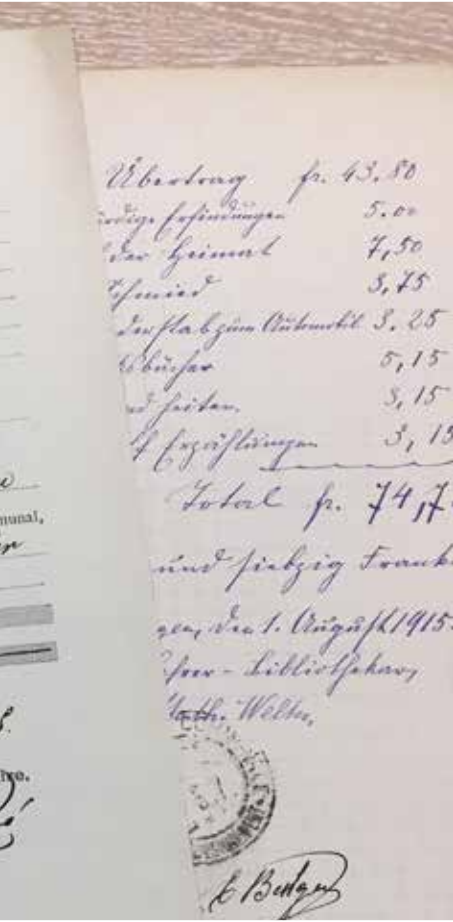 Übertrag fr. 43.80
ürdige Erfindungen 5.00
der Heimat 7,50
Schmied 3,75
der Stab zum Automobil 3.25
bücher 5,15
nd Zeiten 3,15
f Erzählungen 3,15
Total fr. 74,7
und siebzig Frank
gen, den 1. August 1915.
ehrer-Bibliothekar,
Math. Welter,
munal,